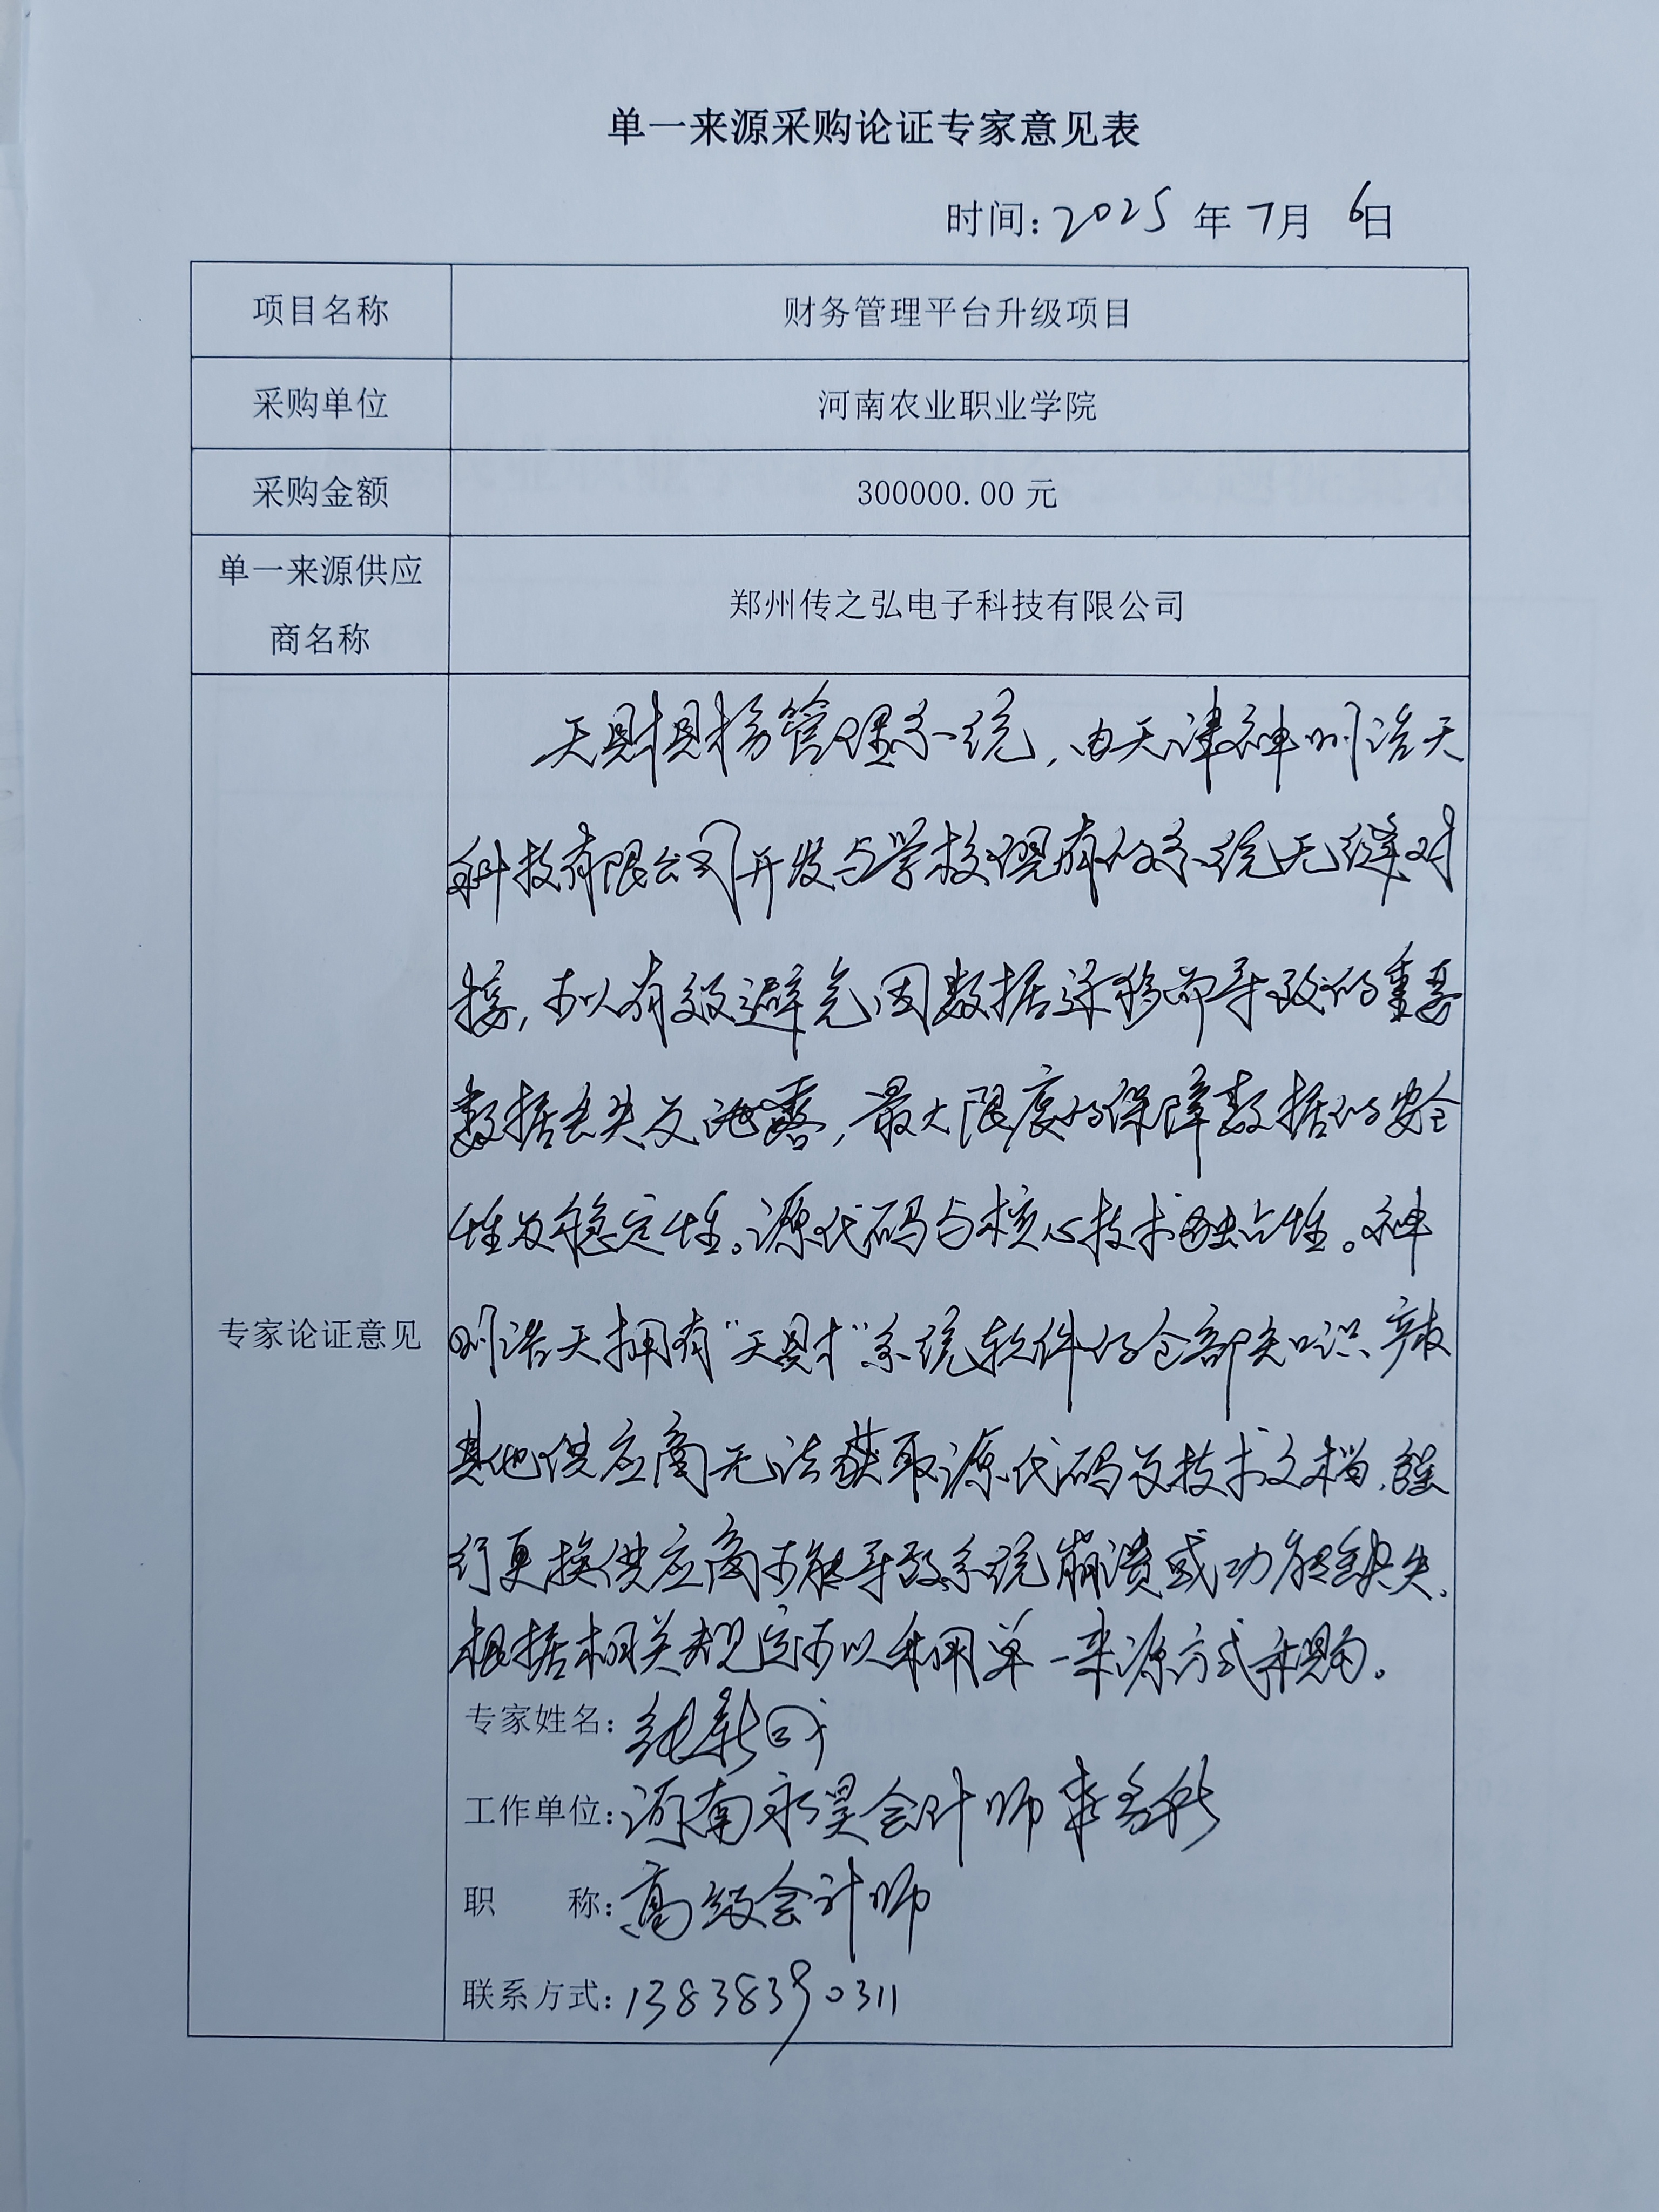 单一来源采购论证专家意见表
时间：2025年7月6日
项目名称 财务管理平台升级项目
采购单位 河南农业职业学院
采购金额 300000.00元
单一来源供应
商名称
郑州传之弘电子科技有限公司
天财财务管理系统，由天津神州浩天
科技有限公司开发与学校现有的系统无缝对
接，可以有效避免因数据迁移而导致的重要
数据丢失及泄露，最大限度的保障数据的安全
性及稳定性。源代码与核心技术独占性。神
州浩天拥有“天财”系统软件的全部知识产权
其他供应商无法获取源代码及技术文档，强
行更换供应商可能导致系统崩溃或功能缺失。
根据相关规定可以采用单一来源方式采购。
专家论证意见
专家姓名：
工作单位：河南永昊会计师事务所
职 称：高级会计师
联系方式：13838390311